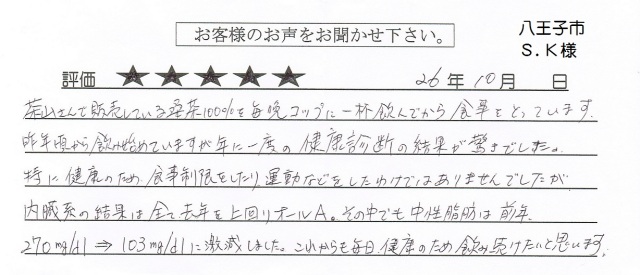 八王子市
お客様のお声をお聞かせ下さい。
S.K様
評価 ★★★★★ 26年10月 日
茶山さんで販売している桑茶100%を毎晩コップに一杯飲んでから食事をとっています。
昨年頃から飲み始めていますが年に一度の健康診断の結果が驚きでした。
特に健康のため、食事制限をしたり運動などをしたわけではありませんでしたが
内臓系の結果は全て去年を上回りオールA。その中でも中性脂肪は前年
270mg/dl ⇒ 103mg/dlに激減しました。これからも毎日、健康のため飲み続けたいと思います。